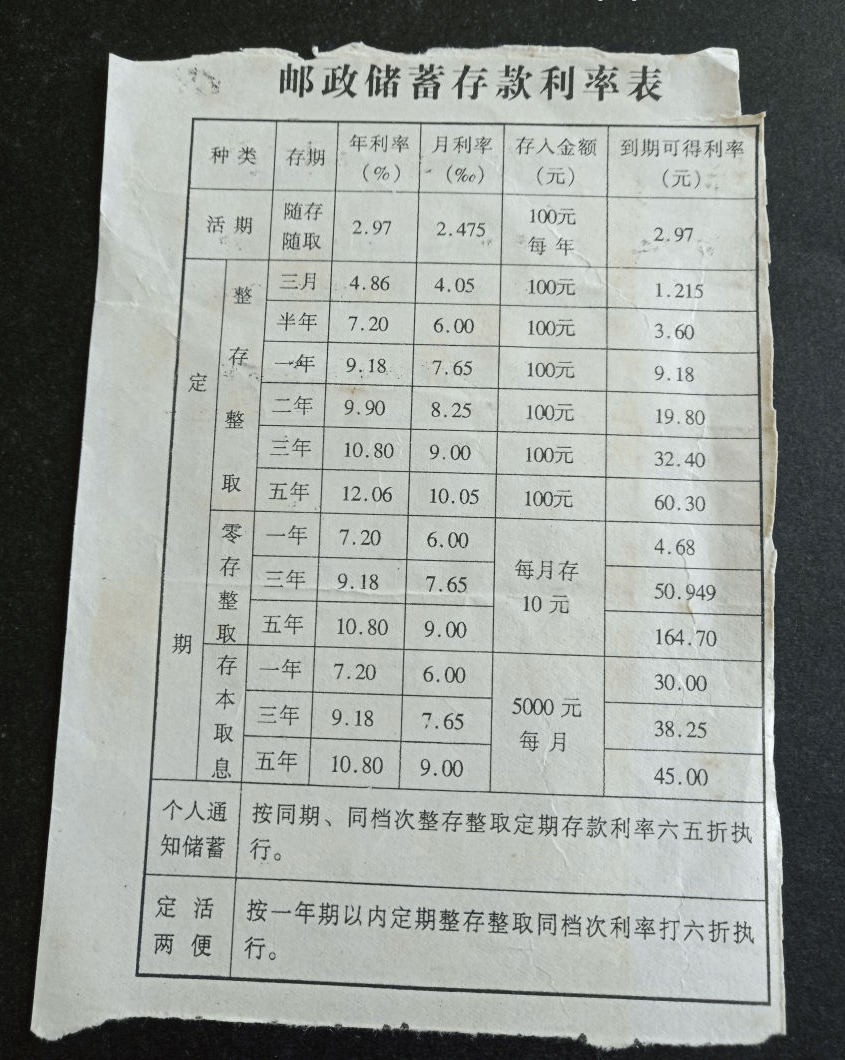 邮政储蓄存款利率表
种类 存期 年利率（%） 月利率（‰） 存入金额（元） 到期可得利率（元）
活期 随存随取 2.97 2.475 100元每年 2.97
定期
整存整取
三月 4.86 4.05 100元 1.215
半年 7.20 6.00 100元 3.60
一年 9.18 7.65 100元 9.18
二年 9.90 8.25 100元 19.80
三年 10.80 9.00 100元 32.40
五年 12.06 10.05 100元 60.30
零存整取
每月存10元
一年 7.20 6.00 4.68
三年 9.18 7.65 50.949
五年 10.80 9.00 164.70
存本取息
5000元每月
一年 7.20 6.00 30.00
三年 9.18 7.65 38.25
五年 10.80 9.00 45.00
个人通知储蓄
按同期、同档次整存整取定期存款利率六五折执
行。
定活两便
按一年期以内定期整存整取同档次利率打六折执
行。